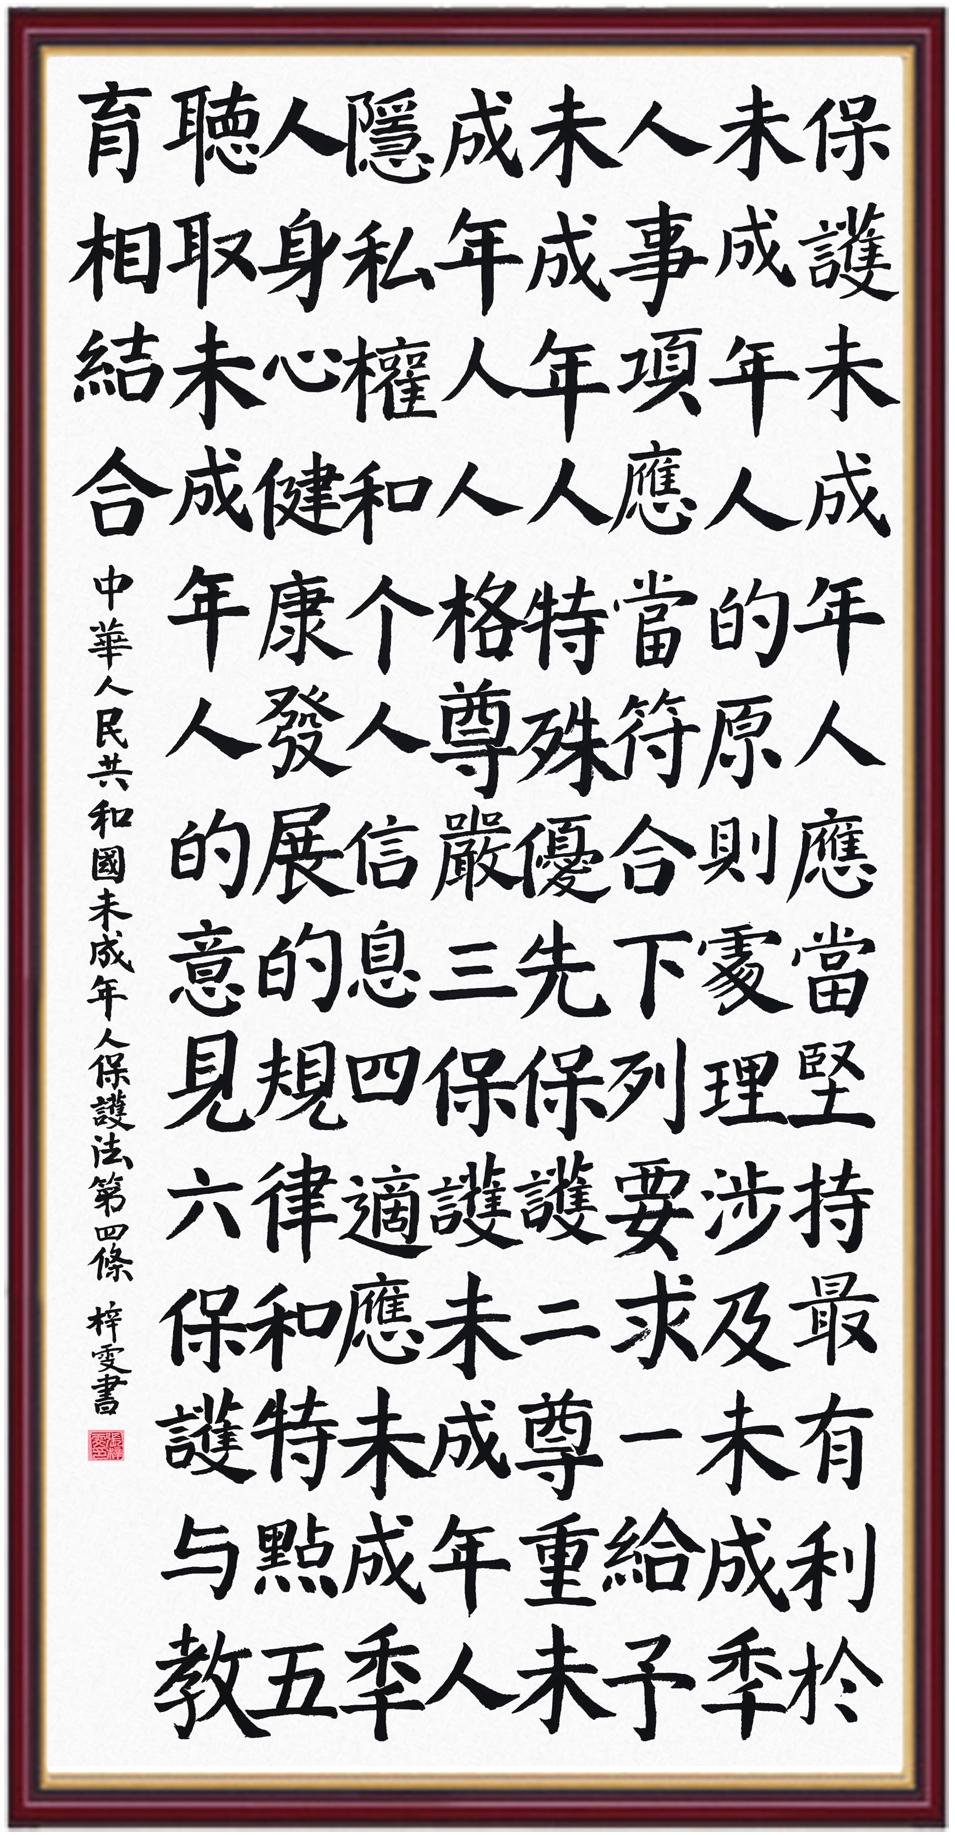 保護未成年人應當堅持最有利於
未成年人的原則處理涉及未成秊
人事項應當符合下列要求一給予
未成年人特殊優先保護二尊重未
成年人人格尊嚴三保護未成年人
隱私權和个人信息四適應未成秊
人身心健康發展的規律和特點五
聽取未成年人的意見六保護与教
育相結合
中華人民共和國未成年人保護法第四條 梓雯書